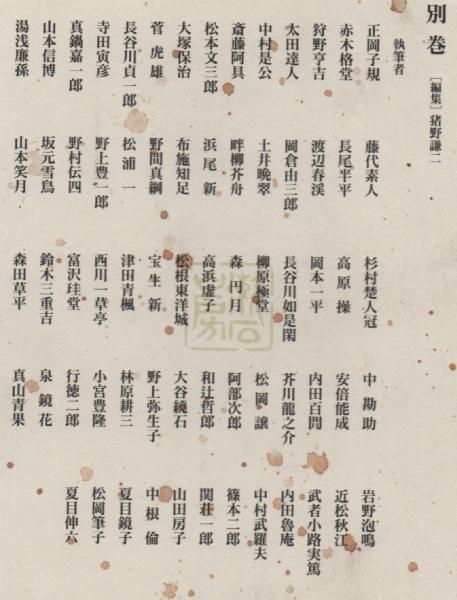 別巻
［編集］猪野謙二
執筆者
正岡子規
赤木格堂
狩野亨吉
太田達人
中村是公
斎藤阿具
松本文三郎
大塚保治
菅虎雄
長谷川貞一郎
寺田寅彦
真鍋嘉一郎
山本信博
湯浅廉孫
藤代素人
長尾半平
渡辺春渓
岡倉由三郎
土井晩翠
畔柳芥舟
浜尾新
布施知足
野間真綱
松浦一
野上豊一郎
野村伝四
坂元雪鳥
山本笑月
杉村楚人冠
高原操
岡本一平
長谷川如是閑
柳原極堂
森円月
高浜虚子
松根東洋城
宝生新
津田青楓
西川一草亭
富沢珪堂
鈴木三重吉
森田草平
中勘助
安倍能成
内田百閒
芥川龍之介
松岡譲
阿部次郎
和辻哲郎
大谷繞石
野上弥生子
林原耕三
小宮豊隆
行徳二郎
泉鏡花
真山青果
岩野泡鳴
近松秋江
武者小路実篤
内田魯庵
中村武羅夫
篠本二郎
関荘一郎
山田房子
中根倫
夏目鏡子
松岡筆子
夏目伸六